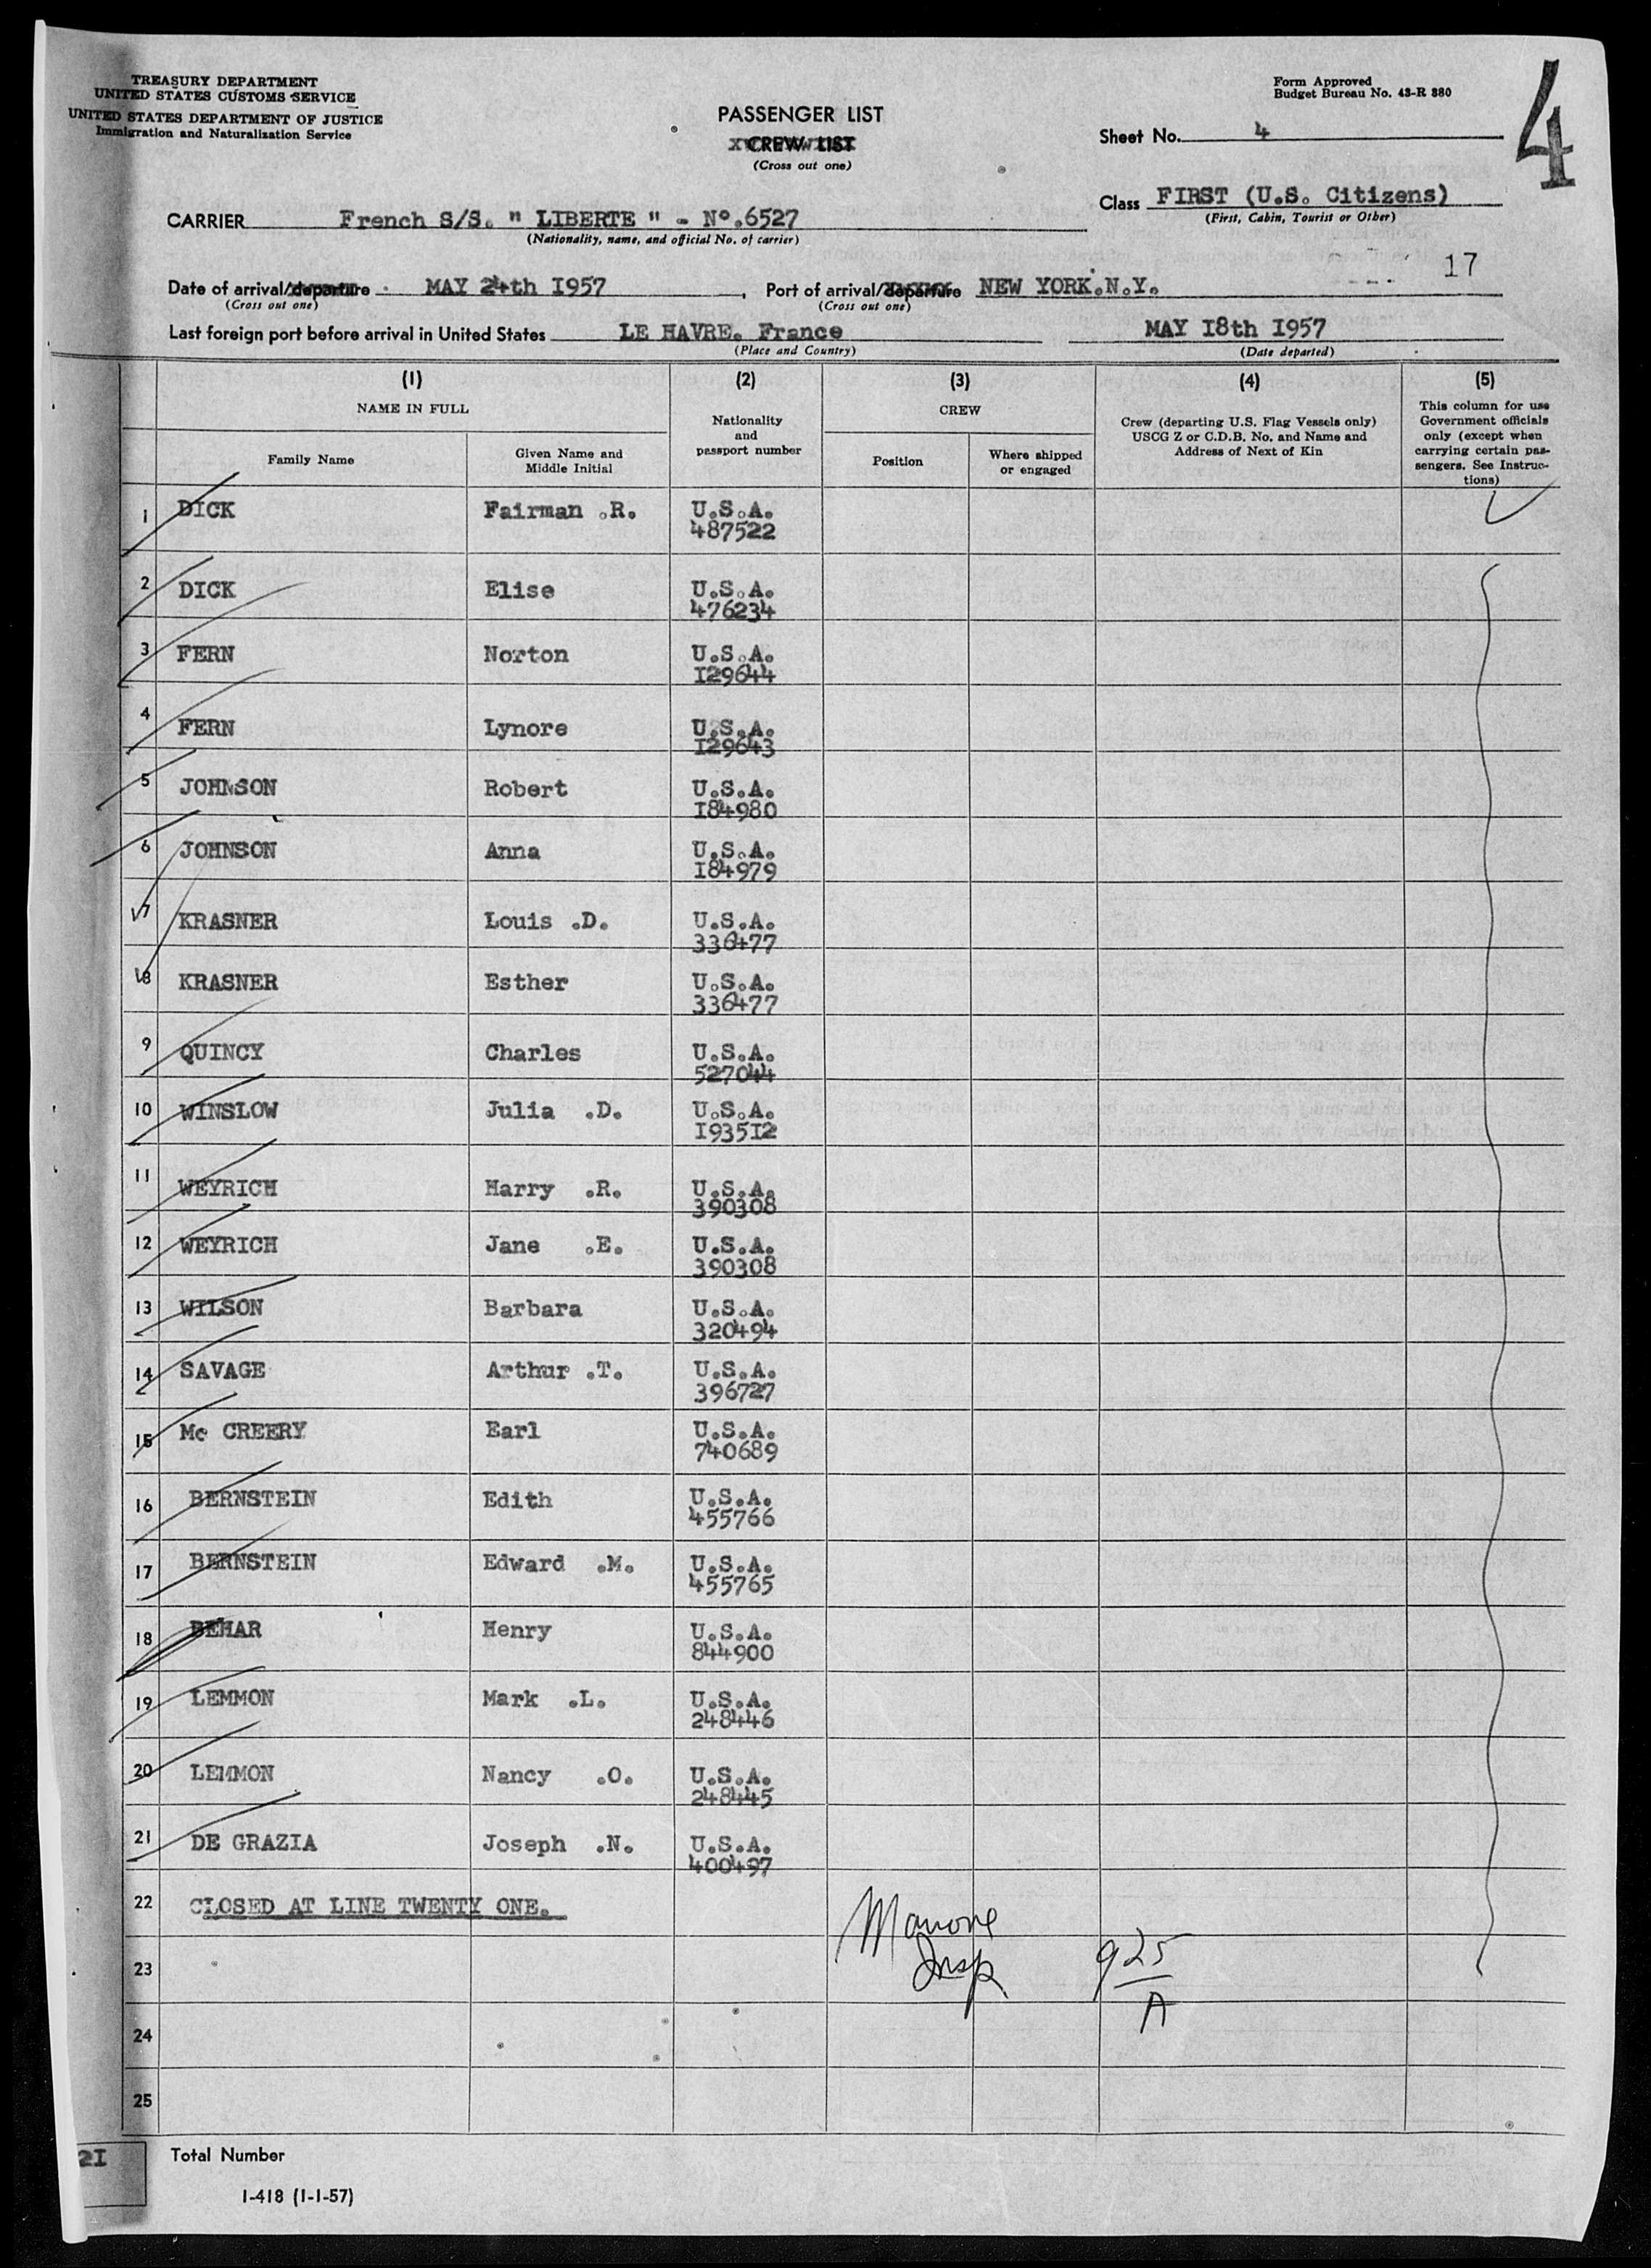 TREASURY DEPARTMENT
UNITED STATES CUSTOMS SERVICE
UNITED STATES DEPARTMENT OF JUSTICE
Immigration and Naturalization Service
Form Approved
Budget Bureau No. 43-R 380
4
PASSENGER LIST
CREW LIST
(Cross out one)
Sheet No. 4
Class FIRST (U.S. Citizens)
(First, Cabin, Tourist or Other)
CARRIER French S/S. " LIBERTE " - Nº.6527
(Nationality, name, and official No. of carrier)
17
Date of arrival/departure . MAY 24th I957 , Port of arrival/departure NEW YORK.N.Y.
(Cross out one) (Cross out one)
Last foreign port before arrival in United States LE HAVRE. France MAY I8th I957
(Place and Country) (Date departed)
(1) (2) (3) (4) (5)
NAME IN FULL
Nationality and passport number
CREW
Crew (departing U.S. Flag Vessels only) USCG Z or C.D.B. No. and Name and Address of Next of Kin
This column for use Government officials only (except when carrying certain passengers. See Instructions)
Family Name Given Name and Middle Initial Position Where shipped or engaged
1 DICK Fairman .R. U.S.A.
487522
2 DICK Elise U.S.A.
476234
3 FERN Norton U.S.A.
I29644
4 FERN Lynore U.S.A.
I29643
5 JOHNSON Robert U.S.A.
I84980
6 JOHNSON Anna U.S.A.
I84979
7 KRASNER Louis .D. U.S.A.
336477
8 KRASNER Esther U.S.A.
336477
9 QUINCY Charles U.S.A.
527044
10 WINSLOW Julia .D. U.S.A.
I935I2
11 WEYRICH Harry .R. U.S.A.
390308
12 WEYRICH Jane .E. U.S.A.
390308
13 WILSON Barbara U.S.A.
320494
14 SAVAGE Arthur .T. U.S.A.
396727
15 Mc CREERY Earl U.S.A.
740689
16 BERNSTEIN Edith U.S.A.
455766
17 BERNSTEIN Edward .M. U.S.A.
455765
18 BEHAR Henry U.S.A.
844900
19 LEMMON Mark .L. U.S.A.
248446
20 LEMMON Nancy .O. U.S.A.
248445
21 DE GRAZIA Joseph .N. U.S.A.
400497
22 CLOSED AT LINE TWENTY ONE.
23 Insp 925
A
24
25
2I Total Number
I-418 (1-1-57)